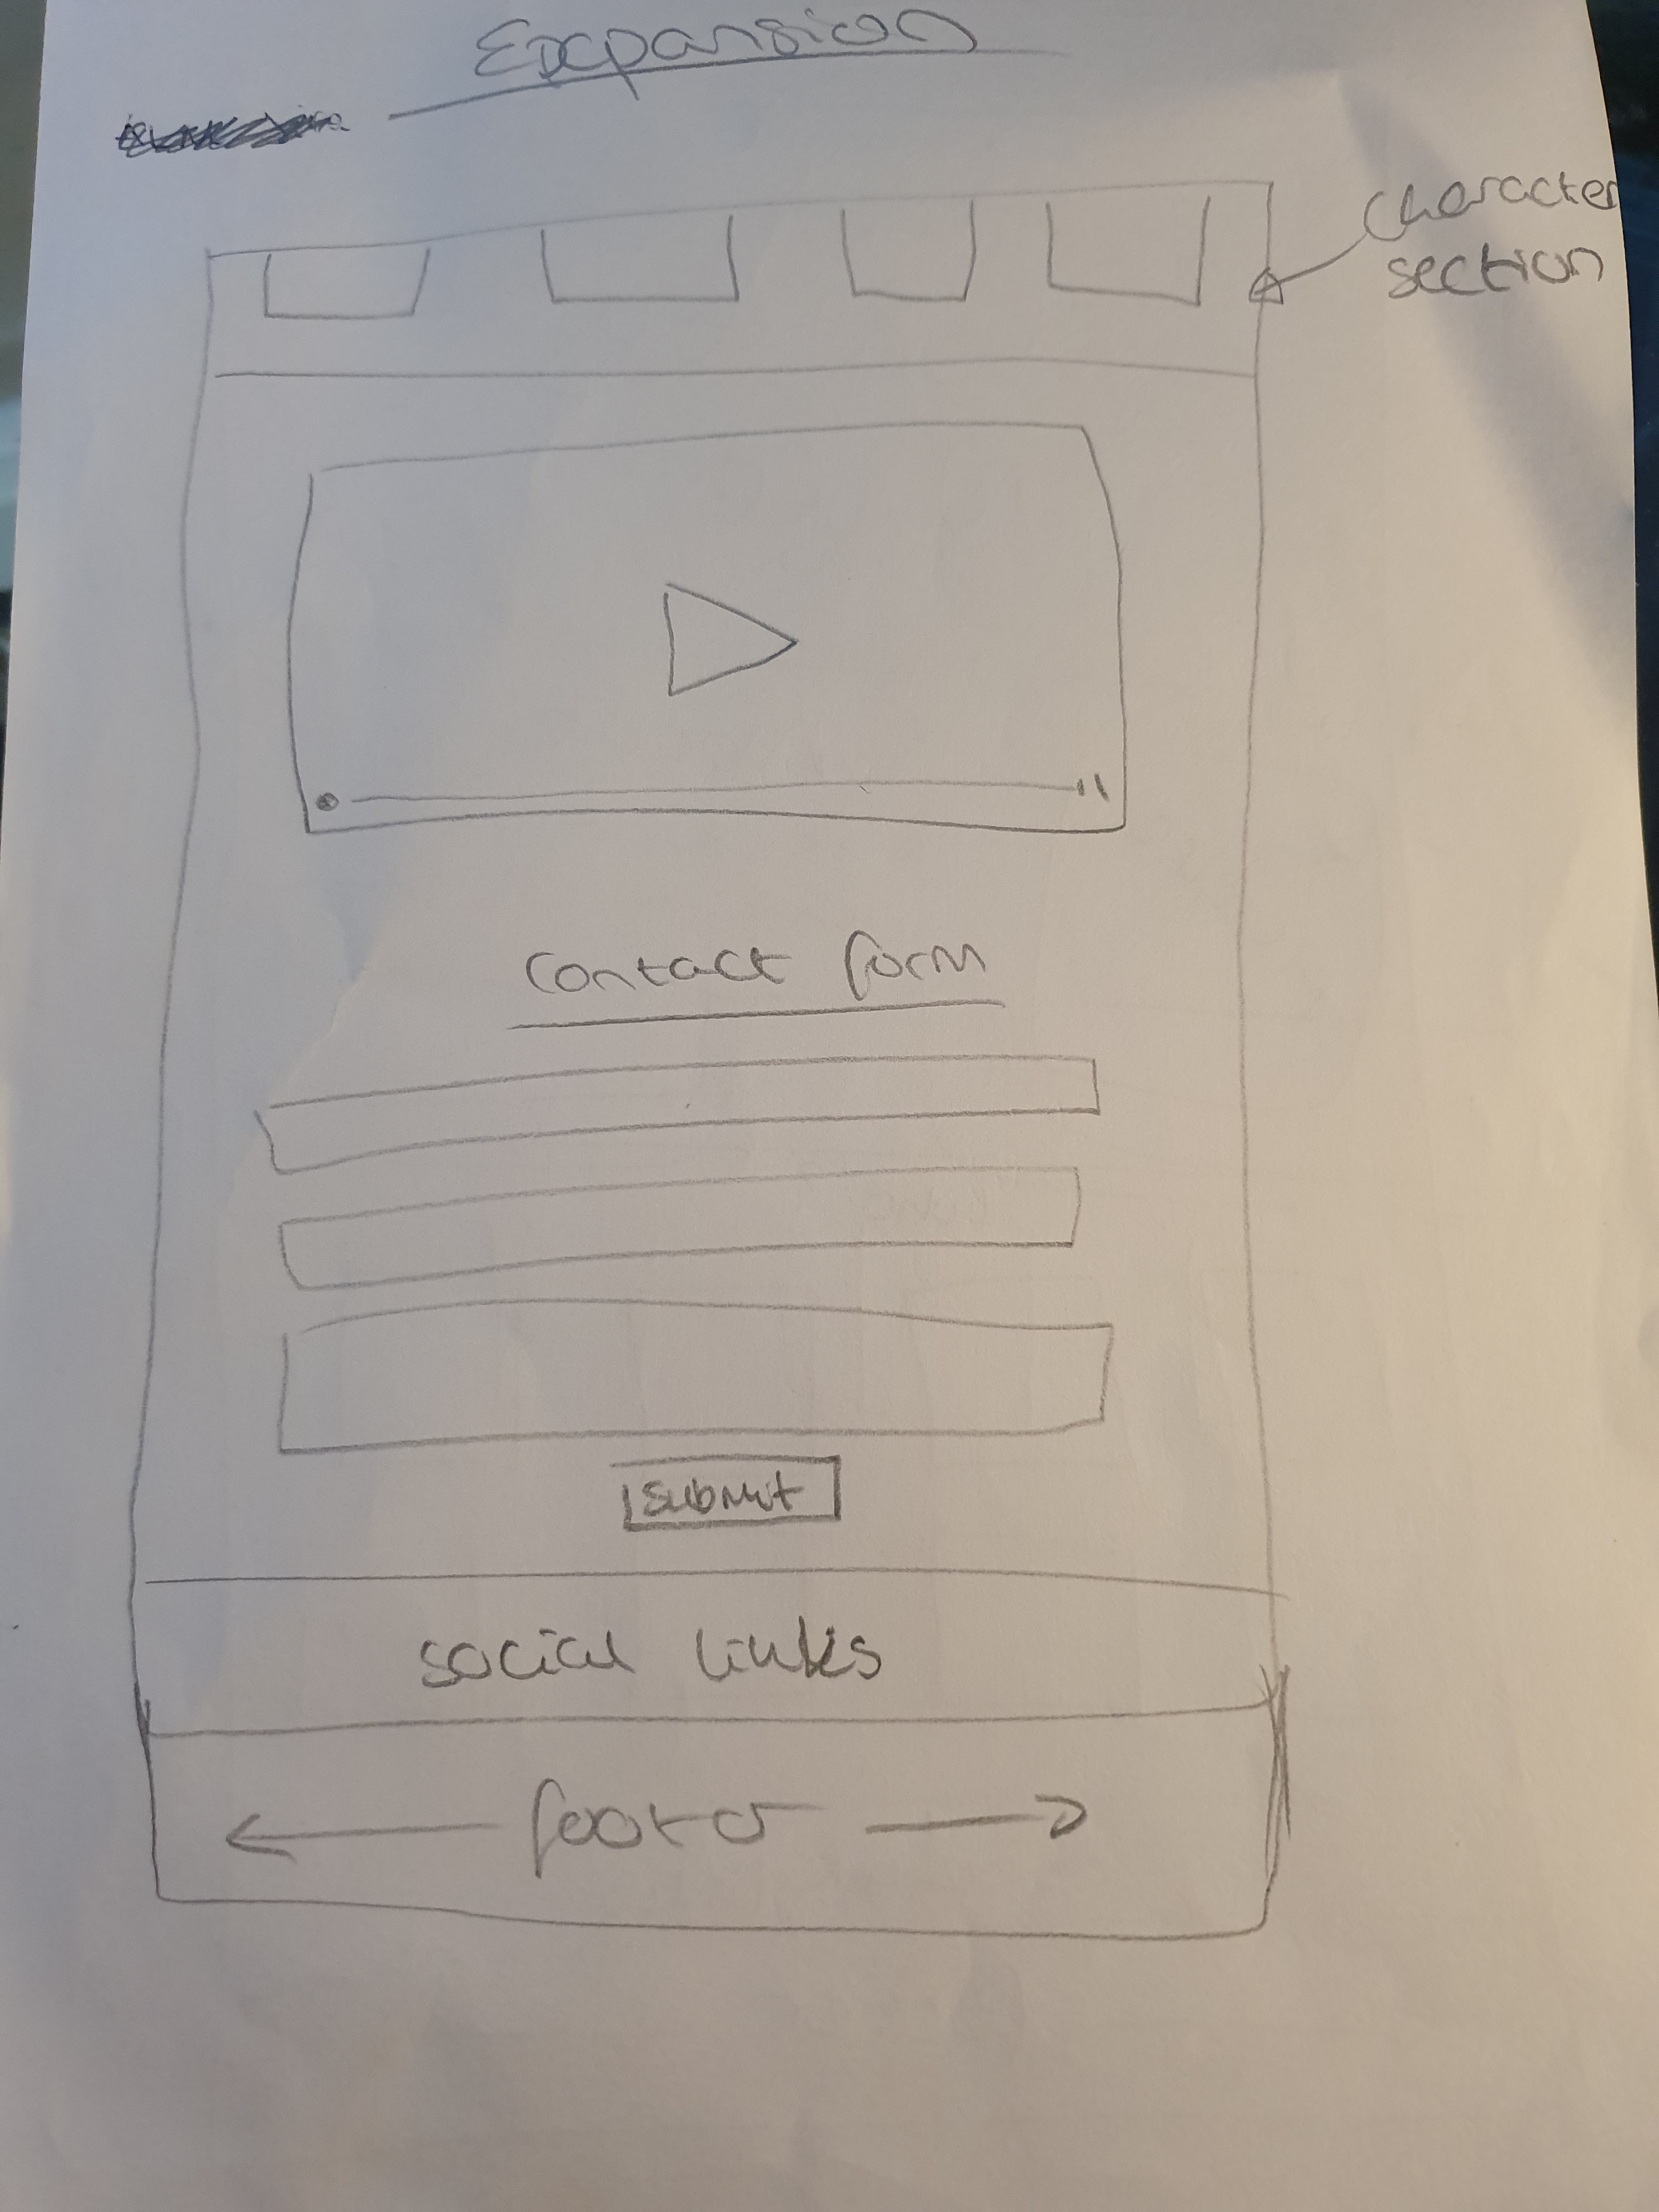 Expansion
character
section
contact form
submit
social links
footer